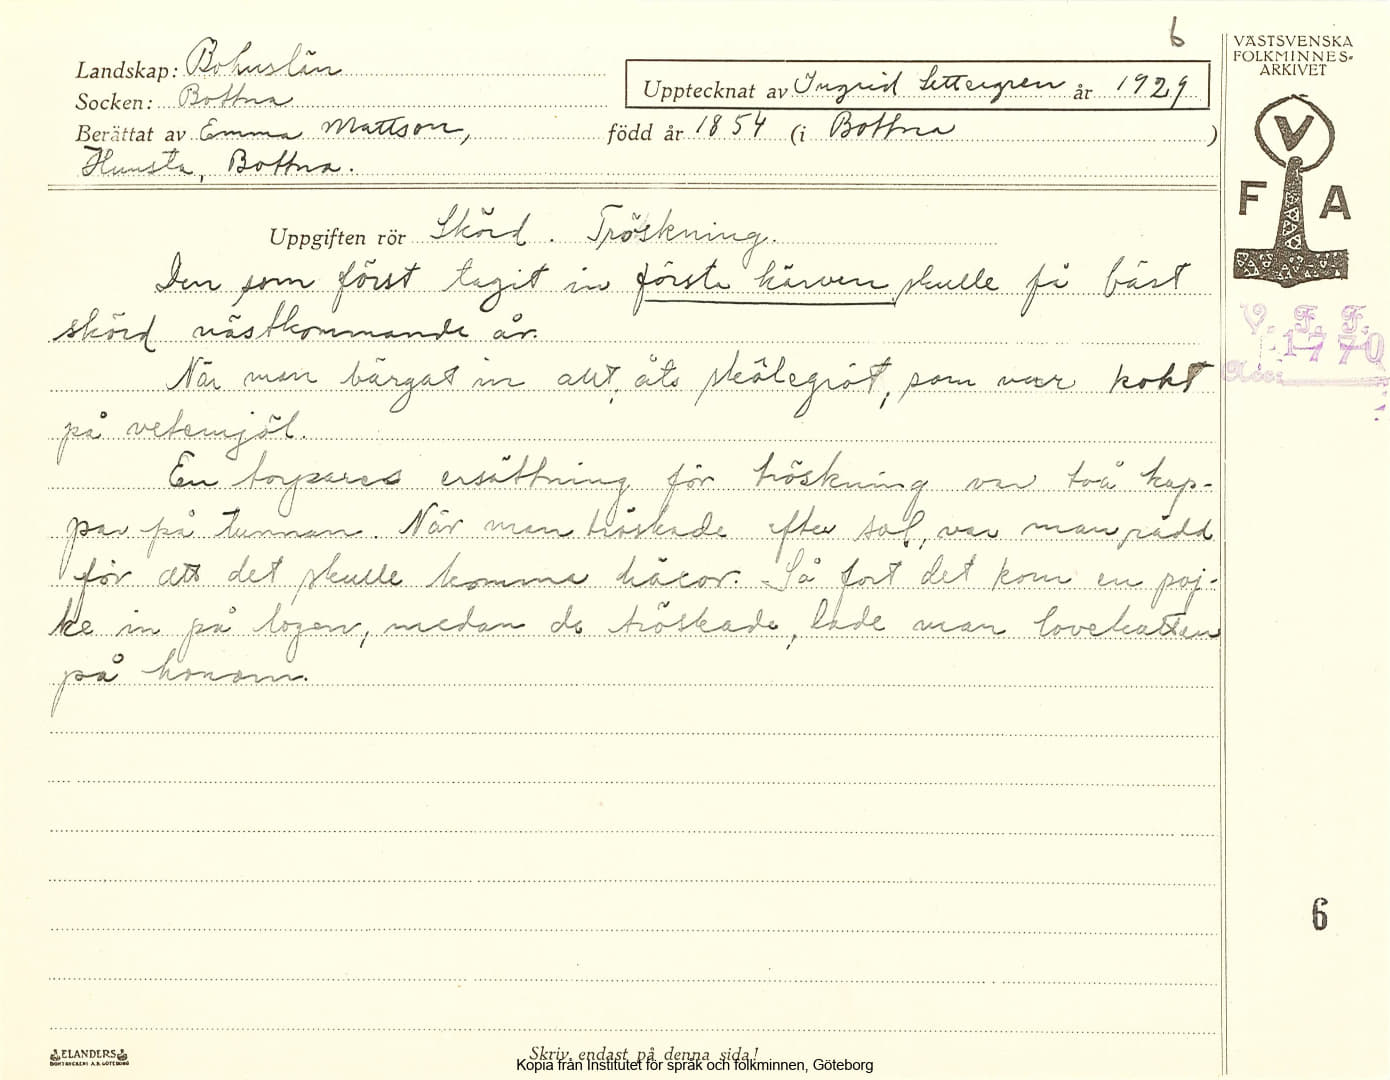 6
VÄSTSVENSKA
FOLKMINNES-
ARKIVET
Landskap: Bohuslän
Socken: Bottna
Upptecknat av Ingrid Settergren år 1929
Berättat av Emma Mattson, född år 1854 (i Bottna )
Hunsta, Bottna.
V
F A
Uppgiften rör Skörd. Tröskning.
Den som först tagit in första kärven skulle få bäst
skörd nästkommande år.
V. F. F.
1770
Acc:
När man bärgat in allt, åts skölegröt, som var kokt
på vetemjöl.
En torpares ersättning för tröskning var två kap-
par på tunnan. När man tröskade efter sol, var man rädd
för att det skulle komma häxor. Så fort det kom en poj-
ke in på logen, medan de tröskade, lade man lovekatten
på honom.
6
ELANDERS
BOKTRYCKERI A.B. GÖTEBORG
Skriv endast på denna sida!
Kopia från Institutet för språk och folkminnen, Göteborg